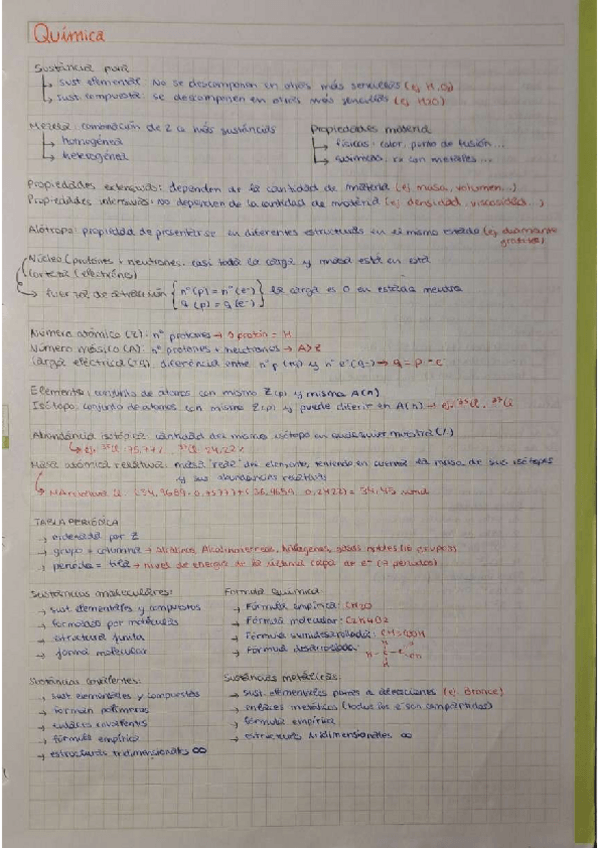 Química
Sustancia pura
↳ sust elementar: No se descomponen en otras más sencillas (ej H, O2)
↳ sust. compuesta: se descomponen en otras más sencillas (ej H2O)
Mezcla: combinación de 2 o más sustancias
↳ homogénea
↳ heterogénea
Propiedades material
↳ físicas: color, punto de fusión...
↳ químicas: con metales...
Propiedades extensivas: dependen de la cantidad de material (ej masa, volumen...)
Propiedades intensivas: no dependen de la cantidad de material (ej densidad, viscosidad...)
Alótropo: propiedad de presentarse en diferentes estructuras en el mismo estado (ej diamante
grafito)
Núcleo (protones + neutrones: casi toda la carga y masa está en esta
Corteza (electrones)
→ fuerzas de atracción { nº(p) = nº(e-) la carga es 0 en estado neutro
q(p) = q(e-)
Número atómico (Z): nº protones → 1 protón = H
Número másico (A): nº protones + neutrones → A>Z
Carga eléctrica: diferencia entre nº p y nº e → q = p - e
Elemento: conjunto de átomos con mismo Z(p) y misma A(n)
Isótopo: conjunto de átomos con mismo Z(p) y puede diferir en A(n) → ej.
Abundancia isotópica: cantidad del mismo isótopo en cualquier muestra (%)
Masa atómica relativa: masa "real" del elemento, teniendo en cuenta la masa de sus isótopos
y sus abundancias relativas
TABLA PERIÓDICA
→ ordenada por Z
→ grupo = columna → alcalinos, Alcalinotérreos, halógenos, gases nobles
→ periodo = fila → nivel de energía de la última capa de e- (7 periodos)
Sustancias moleculares:
→ sust elementales y compuestos
→ formados por moléculas
→ estructura finita
→ forma molecular
Formula Química
→ Fórmula empírica: CH2O
→ Fórmula molecular: C2H4O2
→ Fórmula semidesarrollada:
→ Fórmula desarrollada:
Sustancias covalentes:
→ sust elementales y compuestas
→ forman polímeros
→ enlaces covalentes
→ fórmula empírica
→ estructuras tridimensionales ∞
Sustancias metálicas:
→ sust. elementales puras o aleaciones (ej. bronce)
→ enlaces metálico (todos los e- son compartidos)
→ fórmula empírica
→ estructuras tridimensionales ∞